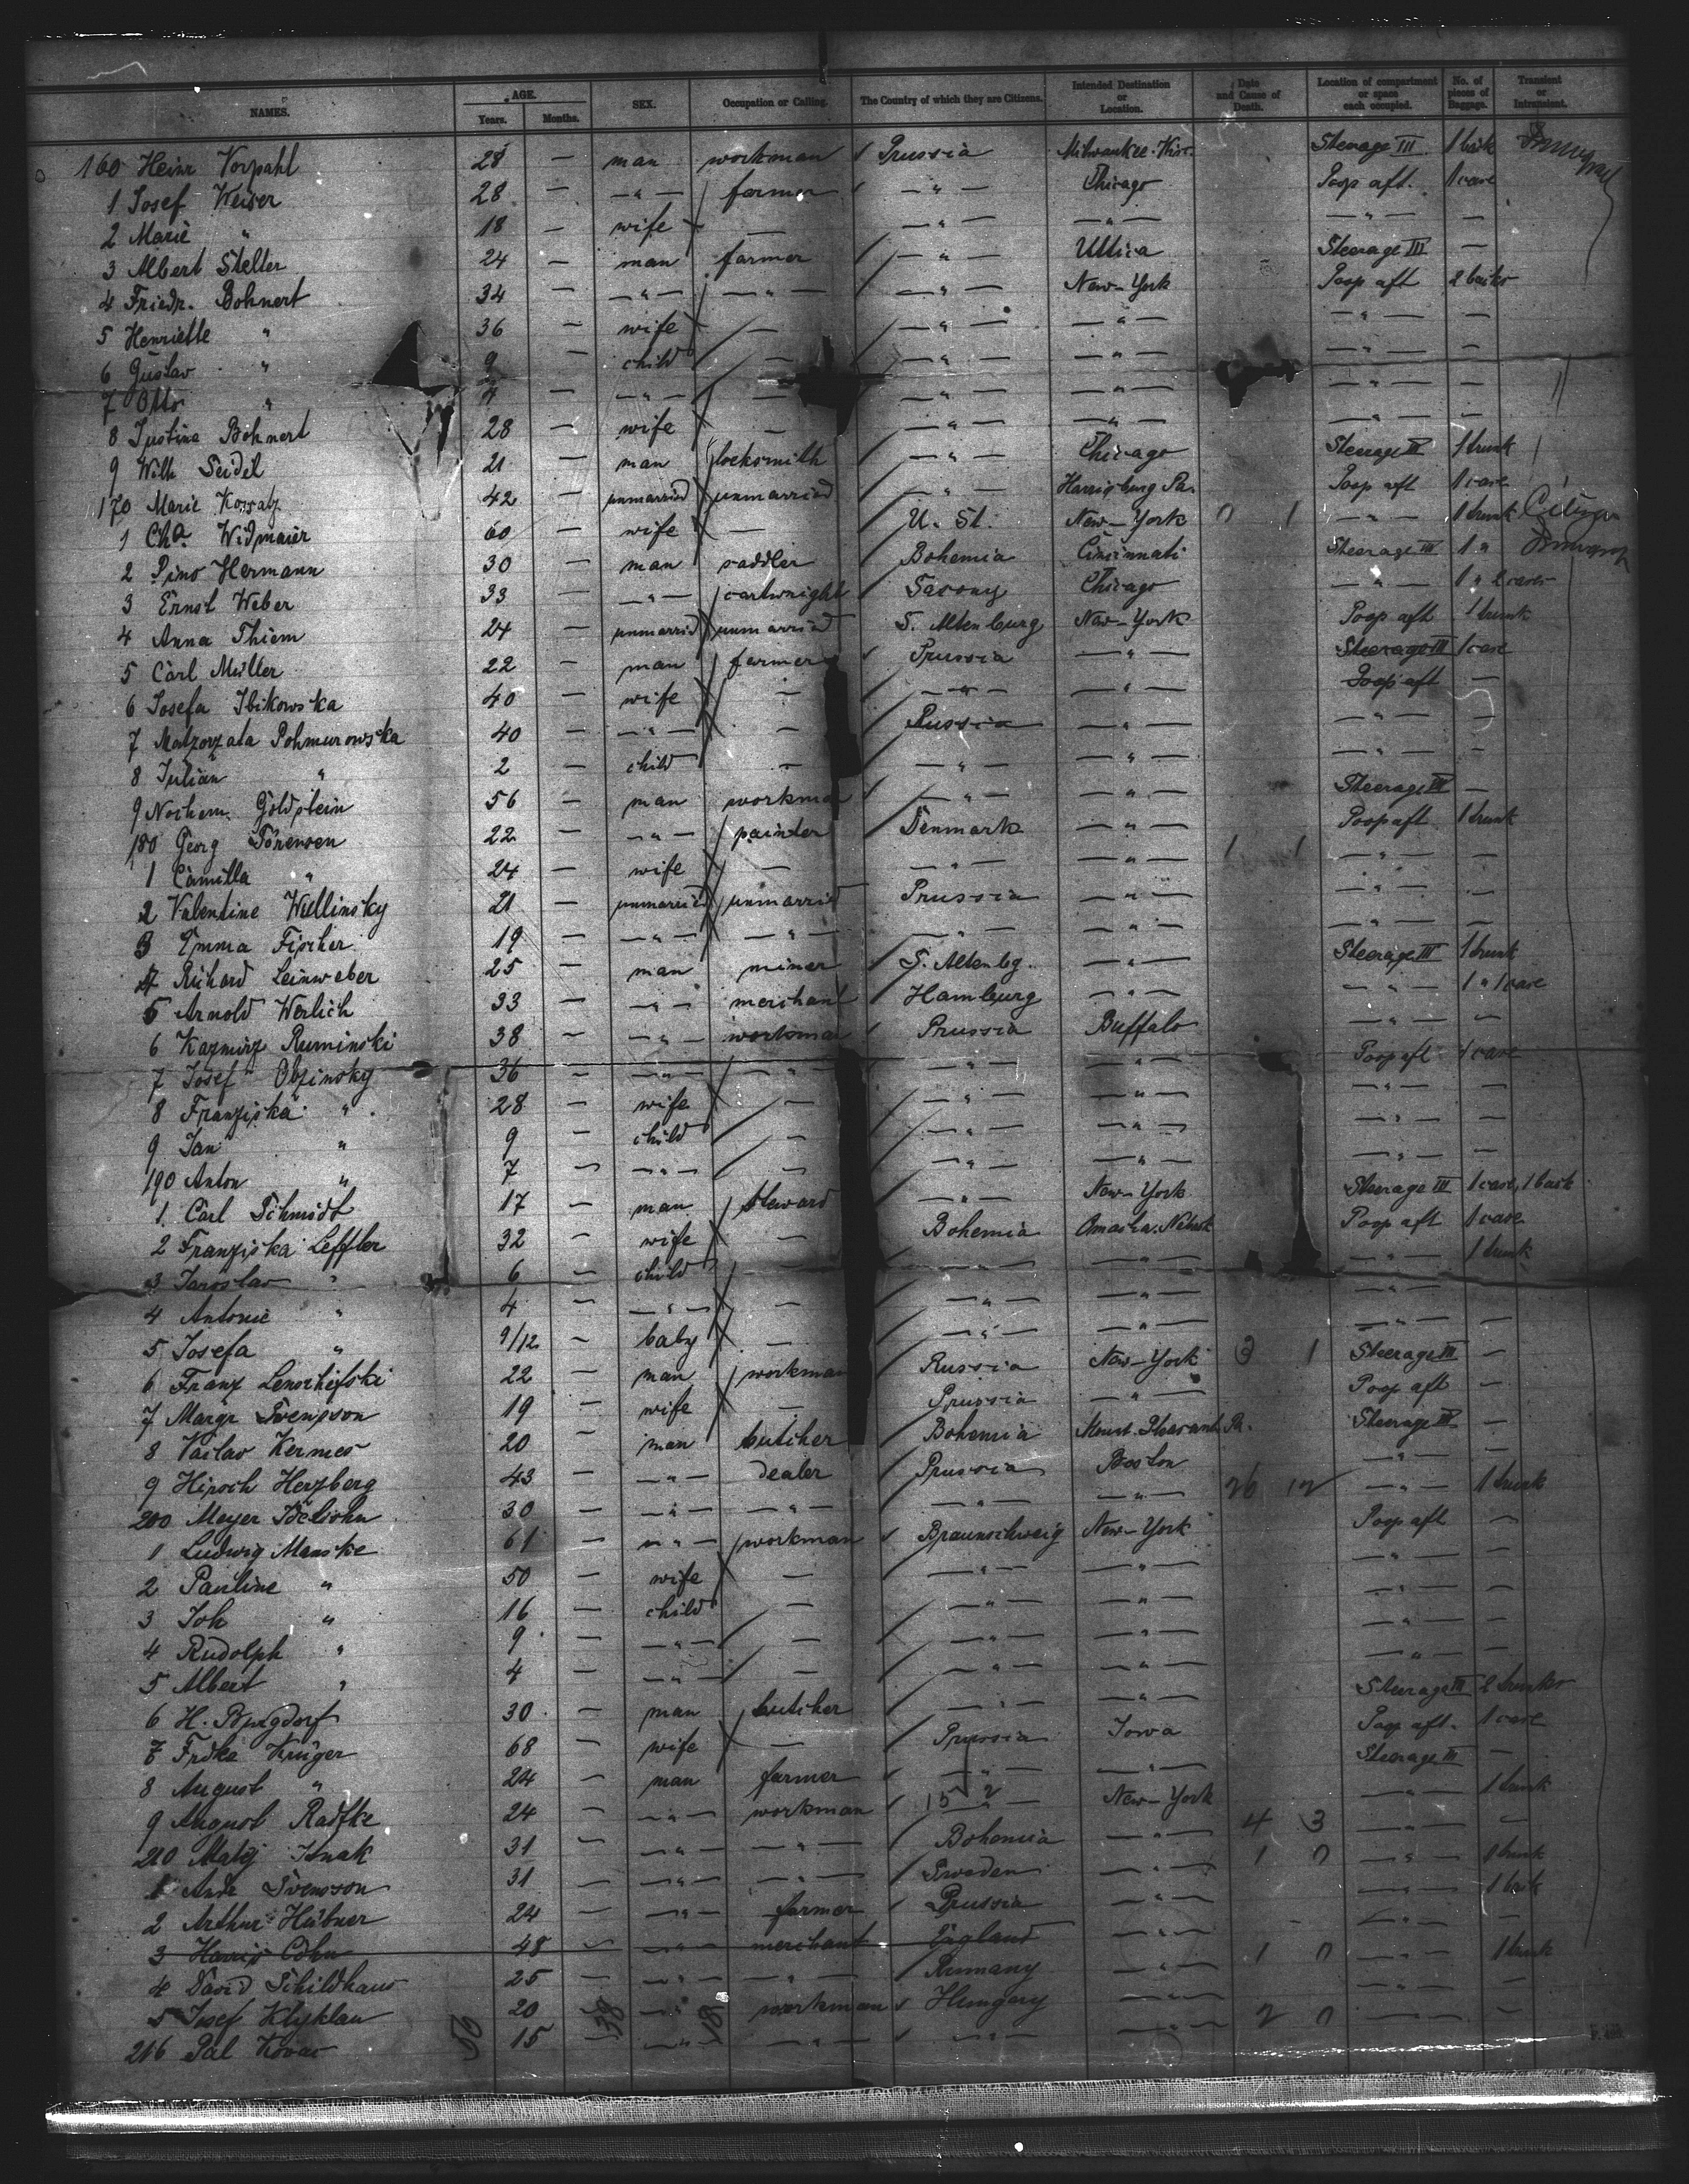 NAMES. AGE. Years. Months. SEX. Occupation or Calling. The Country of which they are Citizens. Intended Destination or Location. Date and Cause of Death. Location of compartment or space each occupied. No. of pieces of Baggage. Transient or Intransient.
160 Heinr Vorpahl 28 — man workman Prussia Milwaukee. Steerage III
1 Josef Weiser 28 — —"— farmer —"— Chicago Poop aft. 1 case
2 Marie " 18 — wife — —"— —"— —"— —
3 Albert Steller 24 — man farmer —"— Uttica Steerage III —
4 Friedr. Bohnert 34 — —"— —"— —"— New-York Poop aft
5 Henriette " 36 — wife — —"— —"— —"— —
6 Gustav " 9 — child — —"— —"— —"— —
7 Otto " 4 — —"— — —"— —"— —"— —
8 Justine Bohnert 28 — wife — —"— —"— —"— —
9 Wilh Seidel 21 — man locksmith —"— Chicago Steerage III 1 trunk
170 Marie 42 — unmarried unmarried —"— Harrigburg Pa. Poop aft 1 case
1 Chr. Widmaier 60 — wife — U. St. New-York 0 1 —"— 1 trunk Citizen
2 Hermann 30 — man saddler Bohemia Cincinnati Steerage III 1 "
3 Ernst Weber 33 — —"— cartwright Saxony Chicago —"— 1 " 2 cases
4 Anna Thiem 24 — unmarried unmarried S. Altenburg New-York Poop aft 1 trunk
5 Carl Müller 22 — man farmer Prussia —"— Steerage III 1 case
6 Josefa Ibikowska 40 — wife — —"— —"— Poop aft —
7 Malzorzata Pohmurowska 40 — —"— — Russia —"— —"— —
8 Julian " 2 — child — —"— —"— —"— —
9 Nochem Goldstein 56 — man workma —"— —"— Steerage III —
180 Georg Sörensen 22 — —"— painter Denmark —"— Poop aft 1 trunk
1 Camilla " 24 — wife — —"— —"— 1 1 —"— —
2 Valentine Wullinsky 21 — unmarried unmarried Prussia —"— —"— —
3 Emma Fischer 19 — —"— —"— —"— —"— —"— —
4 Richard Leinweber 25 — man miner S. Altenbg. —"— Steerage III 1 trunk
5 Arnold Werlich 33 — —"— merchant Hamburg —"— —"— 1 " 1 case
6 Kazmirz Ruminski 38 — —"— workman Prussia Buffalo —"— —
7 Josef Obzinsky 36 — —"— —"— —"— —"— Poop aft 1 case
8 Franziska " 28 — wife — —"— —"— —"— —
9 Jan " 9 — child — —"— —"— —"— —
190 Anton " 7 — —"— — —"— —"— —"— —
1 Carl Schmidt 17 — man steward —"— New-York Steerage III 1 case,
2 Franziska Leffler 32 — wife — Bohemia Omaha. Poop aft 1 case
3 Jaroslav " 6 — child — —"— —"— —"— 1 trunk
4 Antonie " 4 — —"— — —"— —"— —"— —
5 Josefa " 9/12 — baby — —"— —"— —"— —
6 Franz Lenschefski 22 — man workman Russia New-York 3 1 Steerage III —
7 Margr Svenson 19 — wife — Prussia —"— Poop aft —
8 Vaclav Kermes 20 — man butcher Bohemia Mount. Pleasant Pa. Steerage III —
9 Hirsch Herzberg 43 — —"— dealer Prussia Boston —"— —
200 Meyer 30 — —"— —"— —"— —"— 26 12 —"— 1 trunk
1 Ludwig Manske 61 — —"— workman Braunschweig New-York Poop aft —
2 Pauline " 50 — wife — —"— —"— —"— —
3 Joh " 16 — child — —"— —"— —"— —
4 Rudolph " 9 — —"— — —"— —"— —"— —
5 Albert " 4 — —"— — —"— —"— —"— —
6 H. 30 — man butcher —"— —"— Steerage III 2 trunks
7 Frdke Krüger 68 — wife — Prussia Iowa Poop aft. 1 case
8 August " 24 — man farmer —"— —"— Steerage III —
9 August Radtke 24 — —"— workman —"— 15 2 New-York —"— 1 trunk
210 Matij 31 — —"— —"— Bohemia —"— 4 3 —"— —
1 Andr Svensson 31 — —"— —"— Sweden —"— 1 0 —"— 1 trunk
2 Arthur Hübner 24 — —"— farmer Prussia —"— —"—
3 Cohn 48 — —"— merchant England —"— —"— —
4 David Schildhaus 25 — —"— —"— Rumany —"— 1 0 —"— 1 trunk
5 Josef Klyklau 20 — —"— workman Hungary —"— —"— —
216 Pal Kovac 15 — —"— —"— —"— —"— 2 0 —"— —
56 38 18